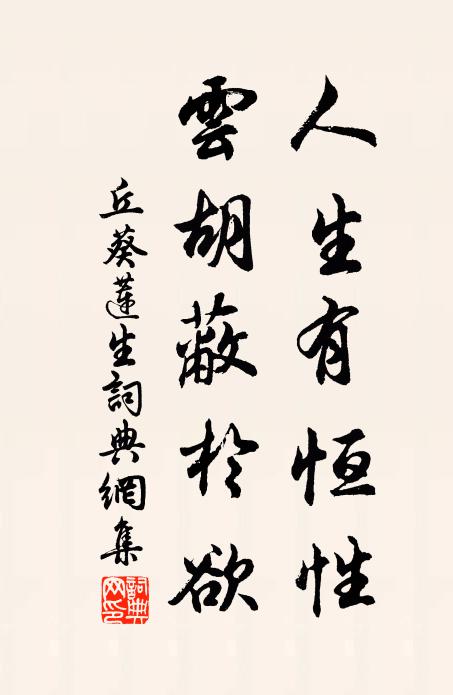 人生有恒性
雲胡蔽於欲
丘葵蓮生詞典網集
詞典網印